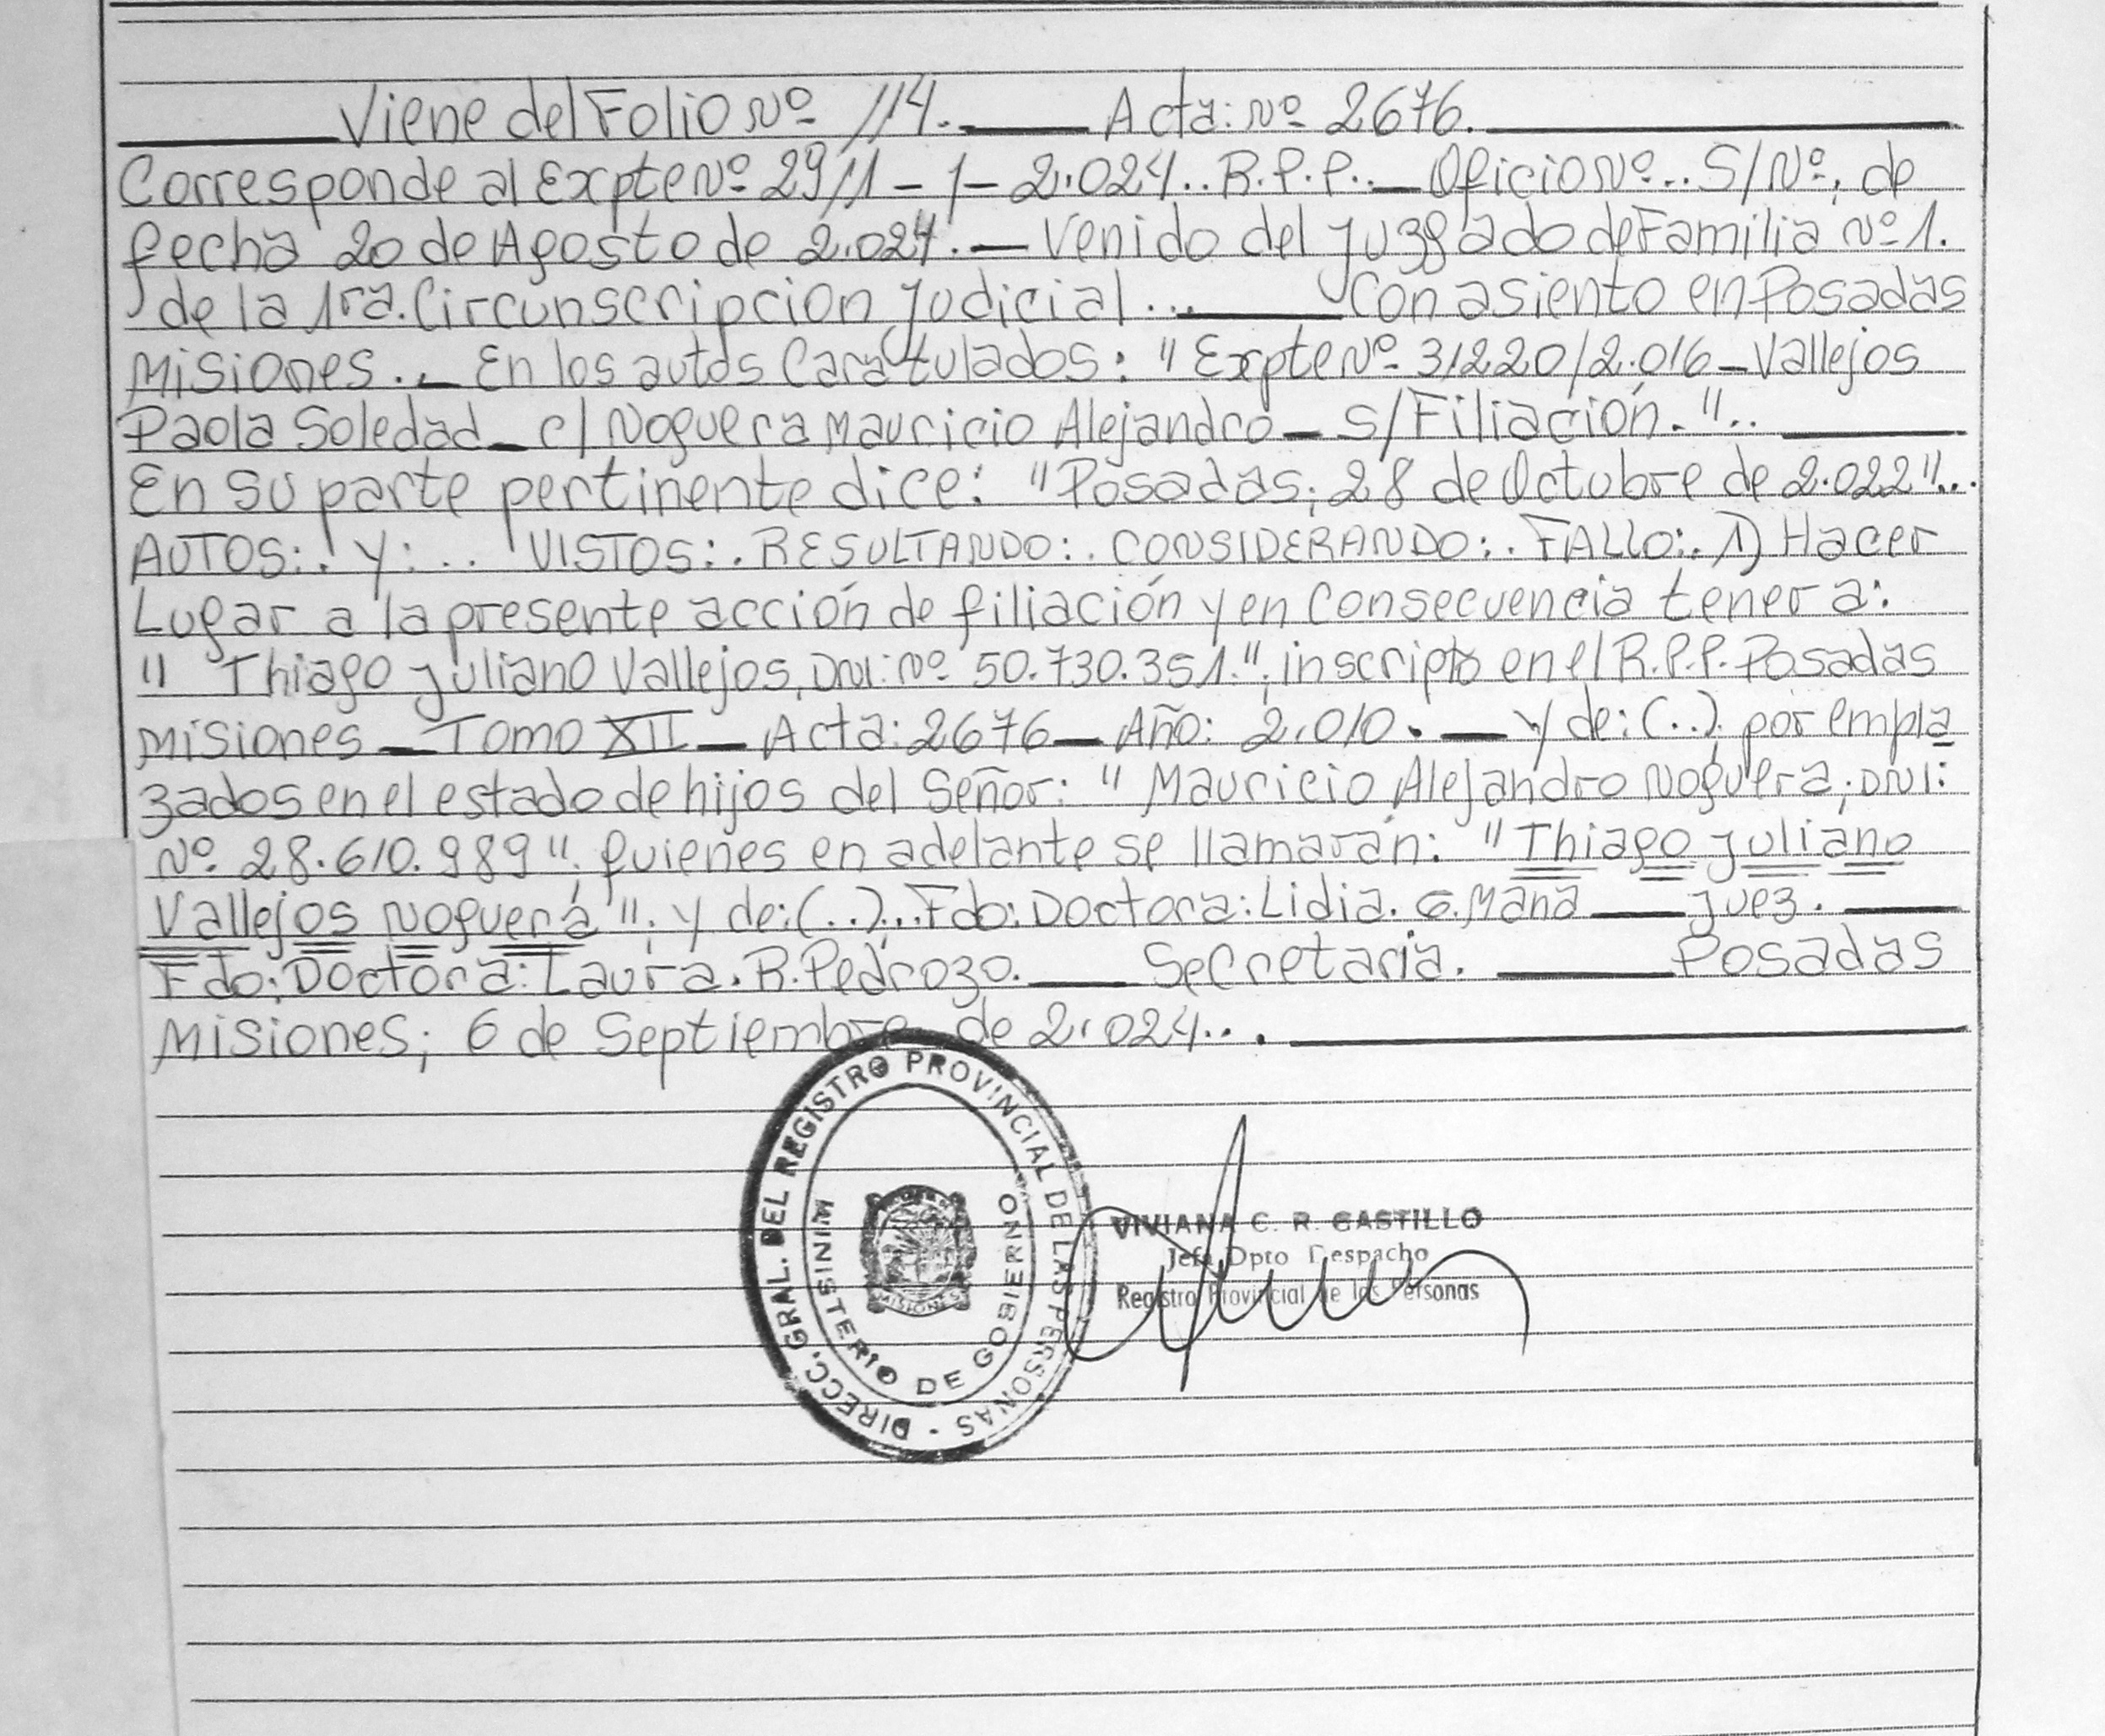 Viene del Folio Nº 114. Acta: Nº 2676.
Corresponde al Expte Nº 2911-1-2.024.. R.P.P.. Oficio Nº.. S/Nº, de
fecha 20 de Agosto de 2.024. Venido del Juzgado de Familia Nº 1.
de la 1ra. Circunscripcion Judicial... Con asiento en Posadas
Misiones.. En los autos Caratulados: "Expte Nº 31220/2.016 - Vallejos
Paola Soledad - c/ Noguera Mauricio Alejandro - S/Filiación."..
En su parte pertinente dice: "Posadas, 28 de Octubre de 2.022"...
AUTOS:. Y:... VISTOS:. RESULTANDO:. CONSIDERANDO:. FALLO:. 1) Hacer
Lugar a la presente acción de filiación y en Consecuencia tener a:
" Thiago Juliano Vallejos, DNI: Nº 50.730.351.", inscripto en el R.P.P. Posadas
Misiones - Tomo XII - Acta: 2676 - Año: 2.010. - y de: (..) por empla
zados en el estado de hijos del Señor: " Mauricio Alejandro Noguera, DNI:
Nº 28.610.989", quienes en adelante se llamarán: "Thiago Juliano
Vallejos Noguera", y de: (..)... Fdo: Doctora: Lidia. G. Mana Juez.
Fdo: Doctora: Laura. R. Pedrozo. Secretaria. Posadas
Misiones; 6 de Septiembre de 2.024...
DIRECC. GRAL. DEL REGISTRO PROVINCIAL DE LAS PERSONAS -
MINISTERIO DE GOBIERNO
MISIONES
VIVIANA C. R. CASTILLO
Jefa Dpto Despacho
Registro Provincial de las Personas